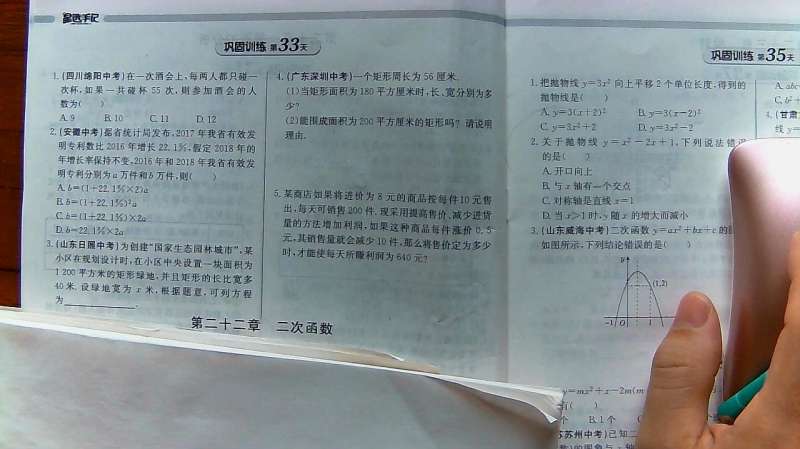 巩固训练 第33天
1.(四川绵阳中考)在一次酒会上,每两人都只碰一
次杯,如果一共碰杯 55 次,则参加酒会的人
数为( )
A. 9 B. 10 C. 11 D. 12
2.(安徽中考)据省统计局发布,2017 年我省有效发
明专利数比 2016 年增长 22.1%,假定 2018 年的
年增长率保持不变,2016 年和 2018 年我省有效发
明专利分别为 a 万件和 b 万件,则( )
A. b=(1+22.1%×2)a
B. b=(1+22.1%)²a
C. b=(1+22.1%)×2a
D. b=22.1%×2a
3.(山东日照中考)为创建“国家生态园林城市”,某
小区在规划设计时,在小区中央设置一块面积为
1 200 平方米的矩形绿地,并且矩形的长比宽多
40米.设绿地宽为 x 米,根据题意,可列方程
为
4.(广东深圳中考)一个矩形周长为 56 厘米.
(1)当矩形面积为 180 平方厘米时,长、宽分别为多
少?
(2)能围成面积为 200 平方厘米的矩形吗?请说明
理由.
5.某商店如果将进价为 8 元的商品按每件 10 元售
出,每天可销售 200 件,现采用提高售价,减少进货
量的方法增加利润,如果这种商品每件涨价 0.5
元,其销售量就会减少 10 件,那么将售价定为多少
时,才能使每天所赚利润为 640 元?
第二十二章 二次函数
巩固训练 第35天
1.把抛物线 y=3x² 向上平移 2 个单位长度,得到的
抛物线是( )
A. y=3(x+2)² B. y=3(x-2)²
C. y=3x²+2 D. y=3x²-2
2.关于抛物线 y=x²-2x+1,下列说法错误
的是( )
A.开口向上
B.与 x 轴有一个交点
C.对称轴是直线 x=1
D.当 x>1 时,y 随 x 的增大而减小
3.(山东威海中考)二次函数 y=ax²+bx+c 的
如图所示,下列结论错误的是( )
y
(1,2)
-1 O 1
y=mx²+x-2m(m
( )
个 B.1个
苏州中考)已知二
A. abc
4.(甘肃
线 y=